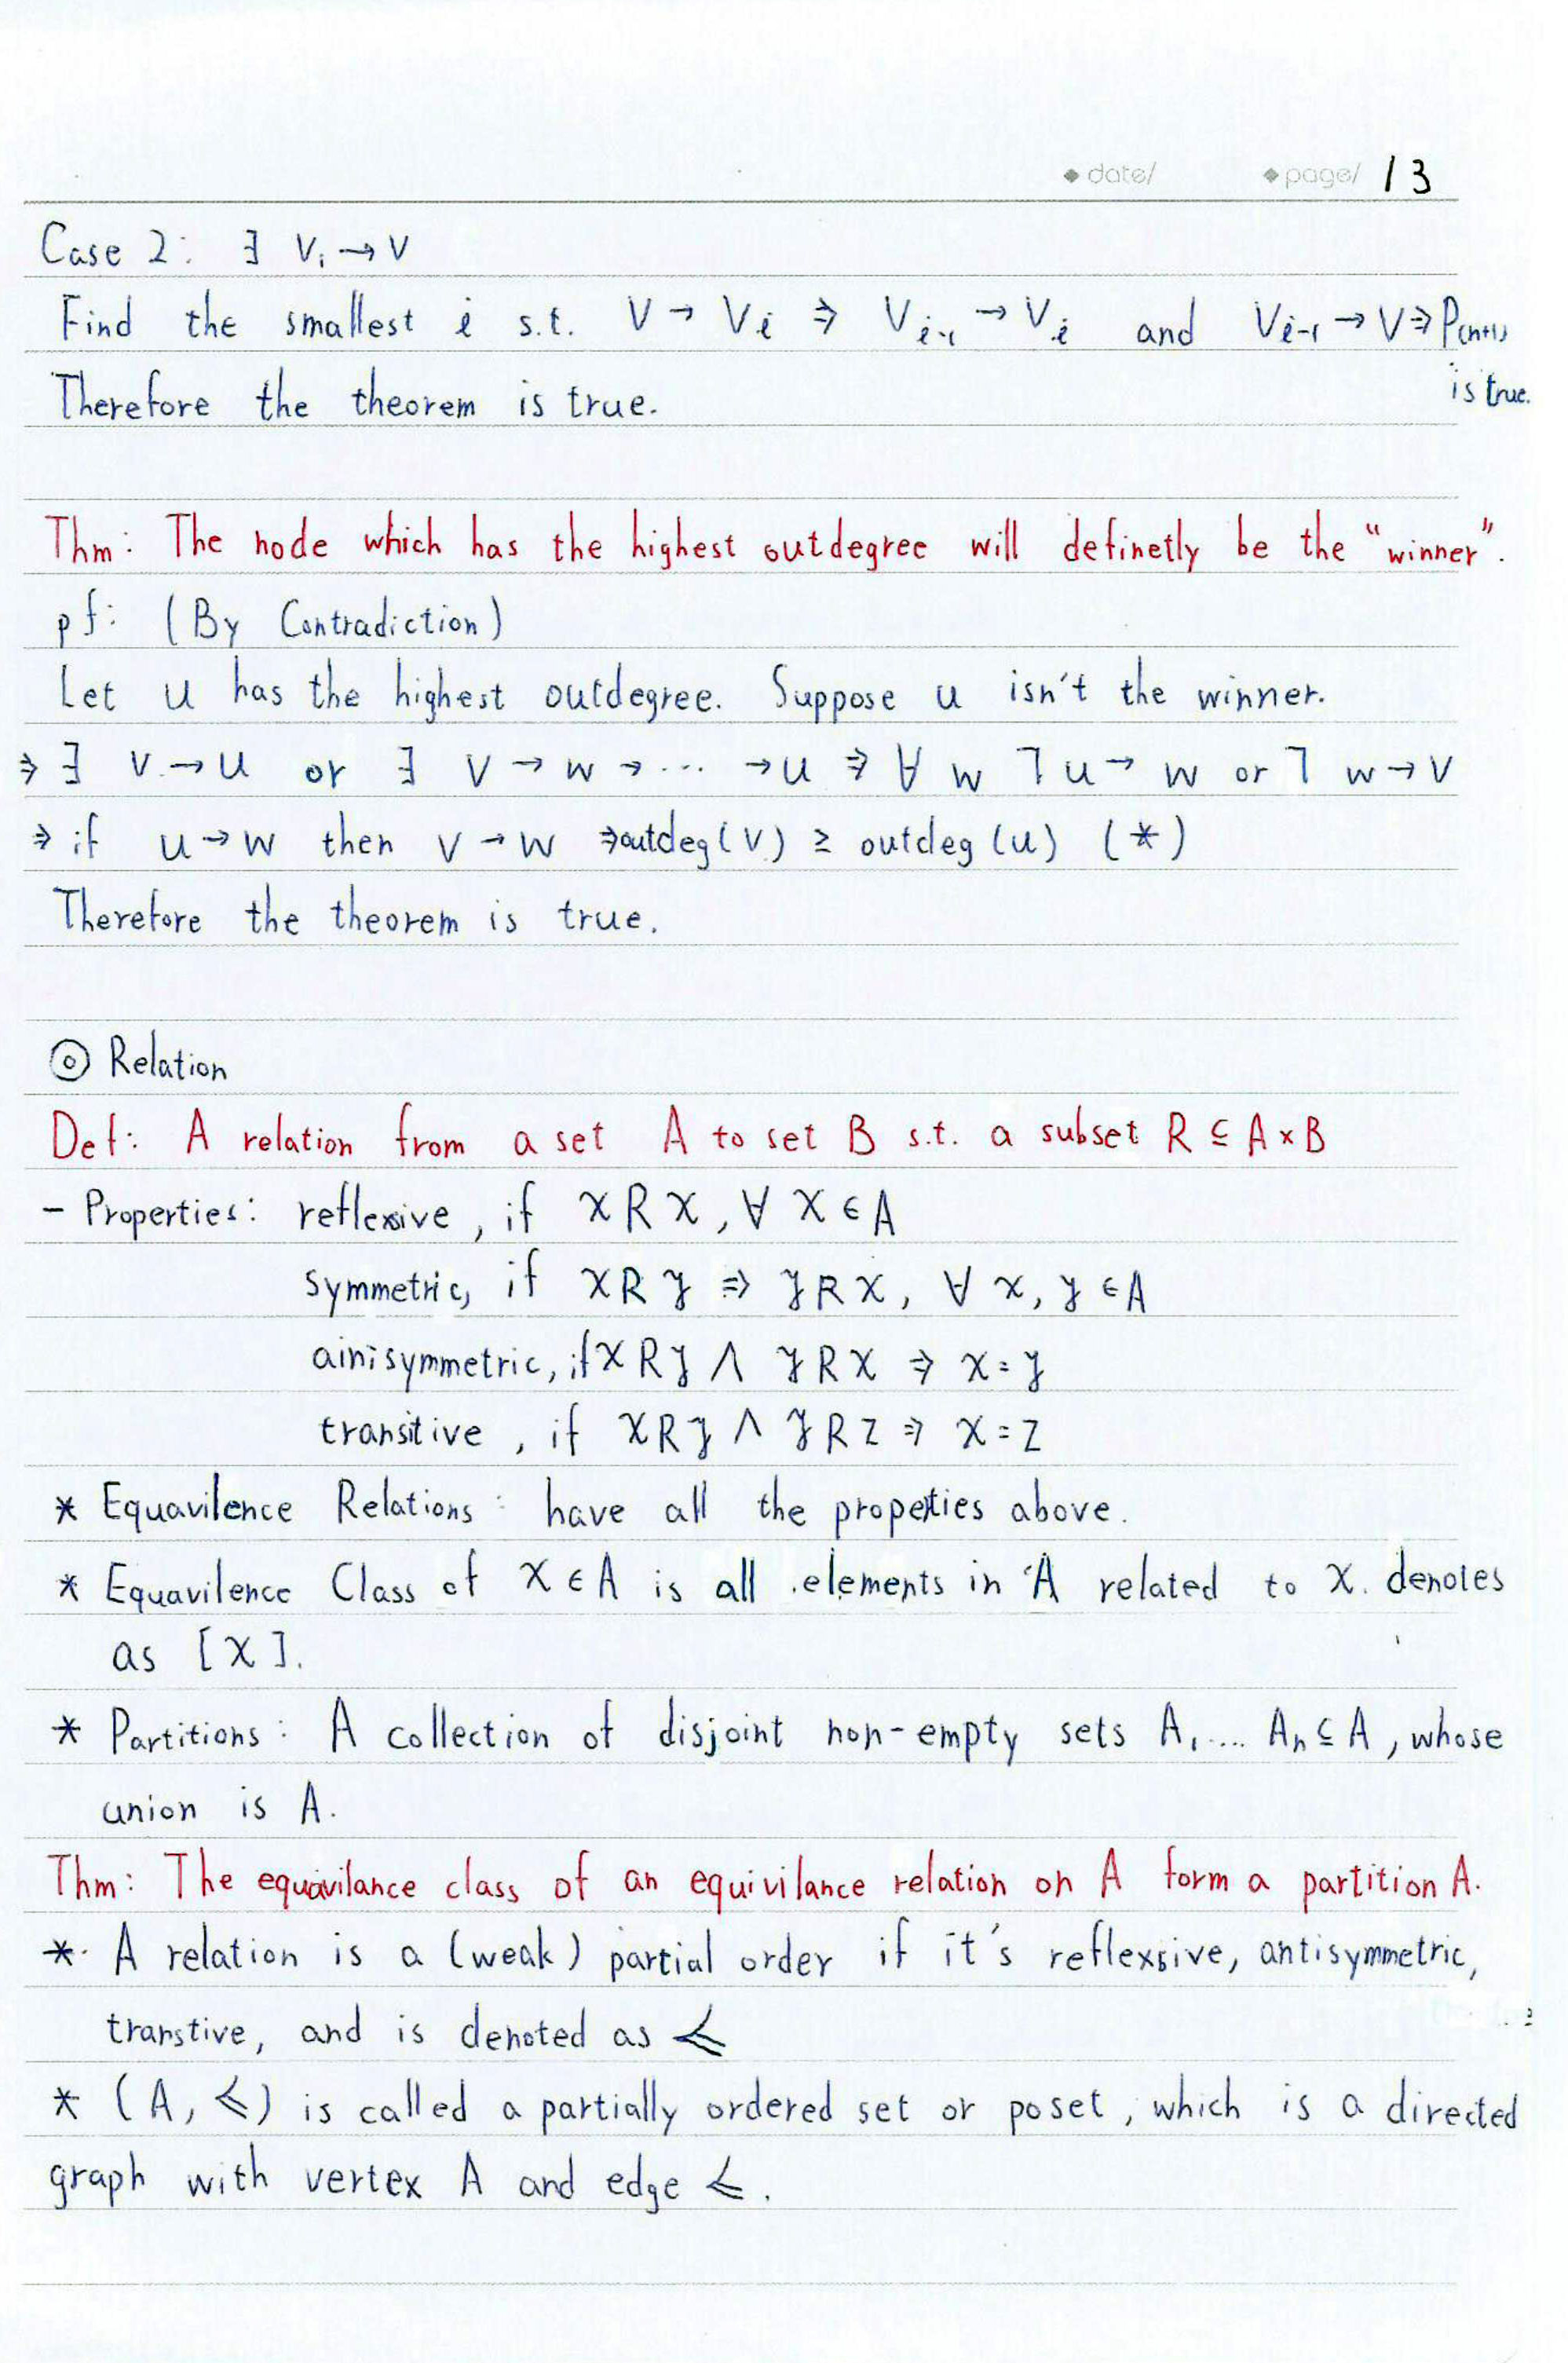 date/ page/ 13
Case 2: ∃ Vi → V
Find the smallest i s.t. V → Vi ⇒ Vi-1 → Vi and Vi-1 → V ⇒ P(n+1)
is true.
Therefore the theorem is true.
Thm: The node which has the highest outdegree will definetly be the “winner”.
pf: (By Contradiction)
Let u has the highest outdegree. Suppose u isn't the winner.
⇒ ∃ V → u or ∃ V → w → ... → u ⇒ ∀ w ¬ u → w or ¬ w → v
⇒ if u → w then v → w ⇒ outdeg(v) ≥ outdeg(u) (*)
Therefore the theorem is true.
◎ Relation
Def: A relation from a set A to set B s.t. a subset R ⊆ A × B
- Properties: reflexive, if x R x, ∀ x ∈ A
symmetric, if x R y ⇒ y R x, ∀ x, y ∈ A
ainisymmetric, if x R y ∧ y R x ⇒ x = y
transitive, if x R y ∧ y R z ⇒ x = z
* Equavilence Relations: have all the properties above.
* Equavilence Class of x ∈ A is all elements in A related to x. denotes
as [x].
* Partitions: A collection of disjoint non-empty sets A1 .... An ⊆ A, whose
union is A.
Thm: The equavilance class of an equivilance relation on A form a partition A.
* A relation is a (weak) partial order if it's reflexsive, antisymmetric,
transtive, and is denoted as ≼
* (A, ≼) is called a partially ordered set or poset, which is a directed
graph with vertex A and edge ≼.